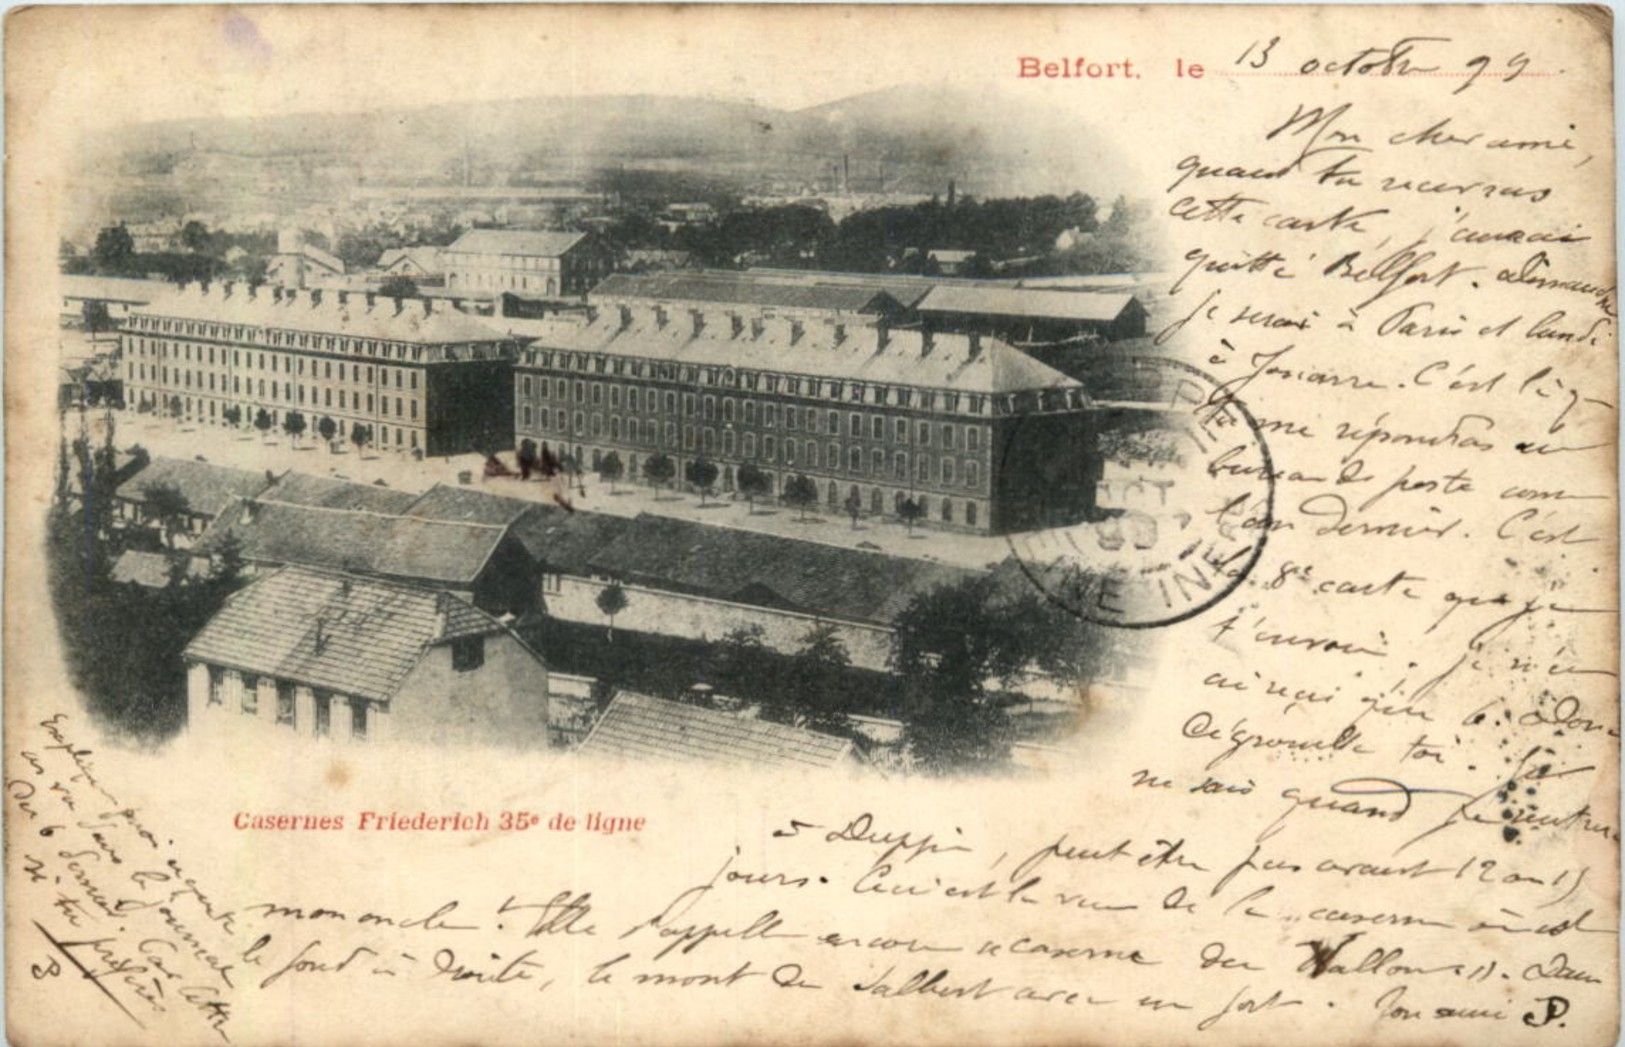 Belfort, le 13 octobre 99.
Mon cher ami,
quand tu recevras
cette carte, j'aurai
quitté Belfort. Dimanche
je serai à Paris et lundi
à
. C'est là q
tu me répondras au
bureau de poste comme
l'an dernier. C'est
la 8e carte que je
t'envoie. Je n'en
ai reçu que 6. Donc
dégrouille toi. Je
ne sais quand je rentrerai
à
, peut être pas avant 12 ou 15
jours. Ceci est la vue de la caserne où est
mon oncle. Elle s'appelle encore "caserne des Vallons". Dans
le fond à droite, le mont du Salbert avec un fort. Ton ami P.
Casernes Friederich 35e de ligne
Explique
moi
dans le journal
du 6
Car
si tu préfères
P